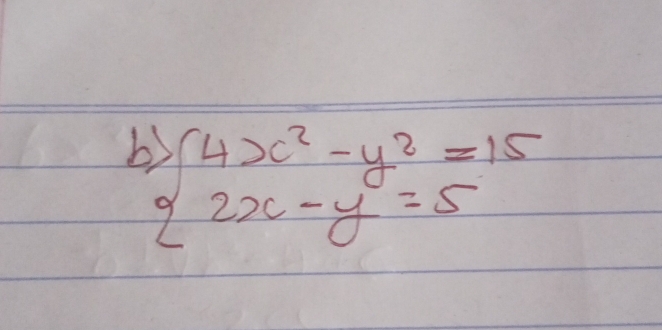 b) { 4x² - y² = 15
2x - y = 5